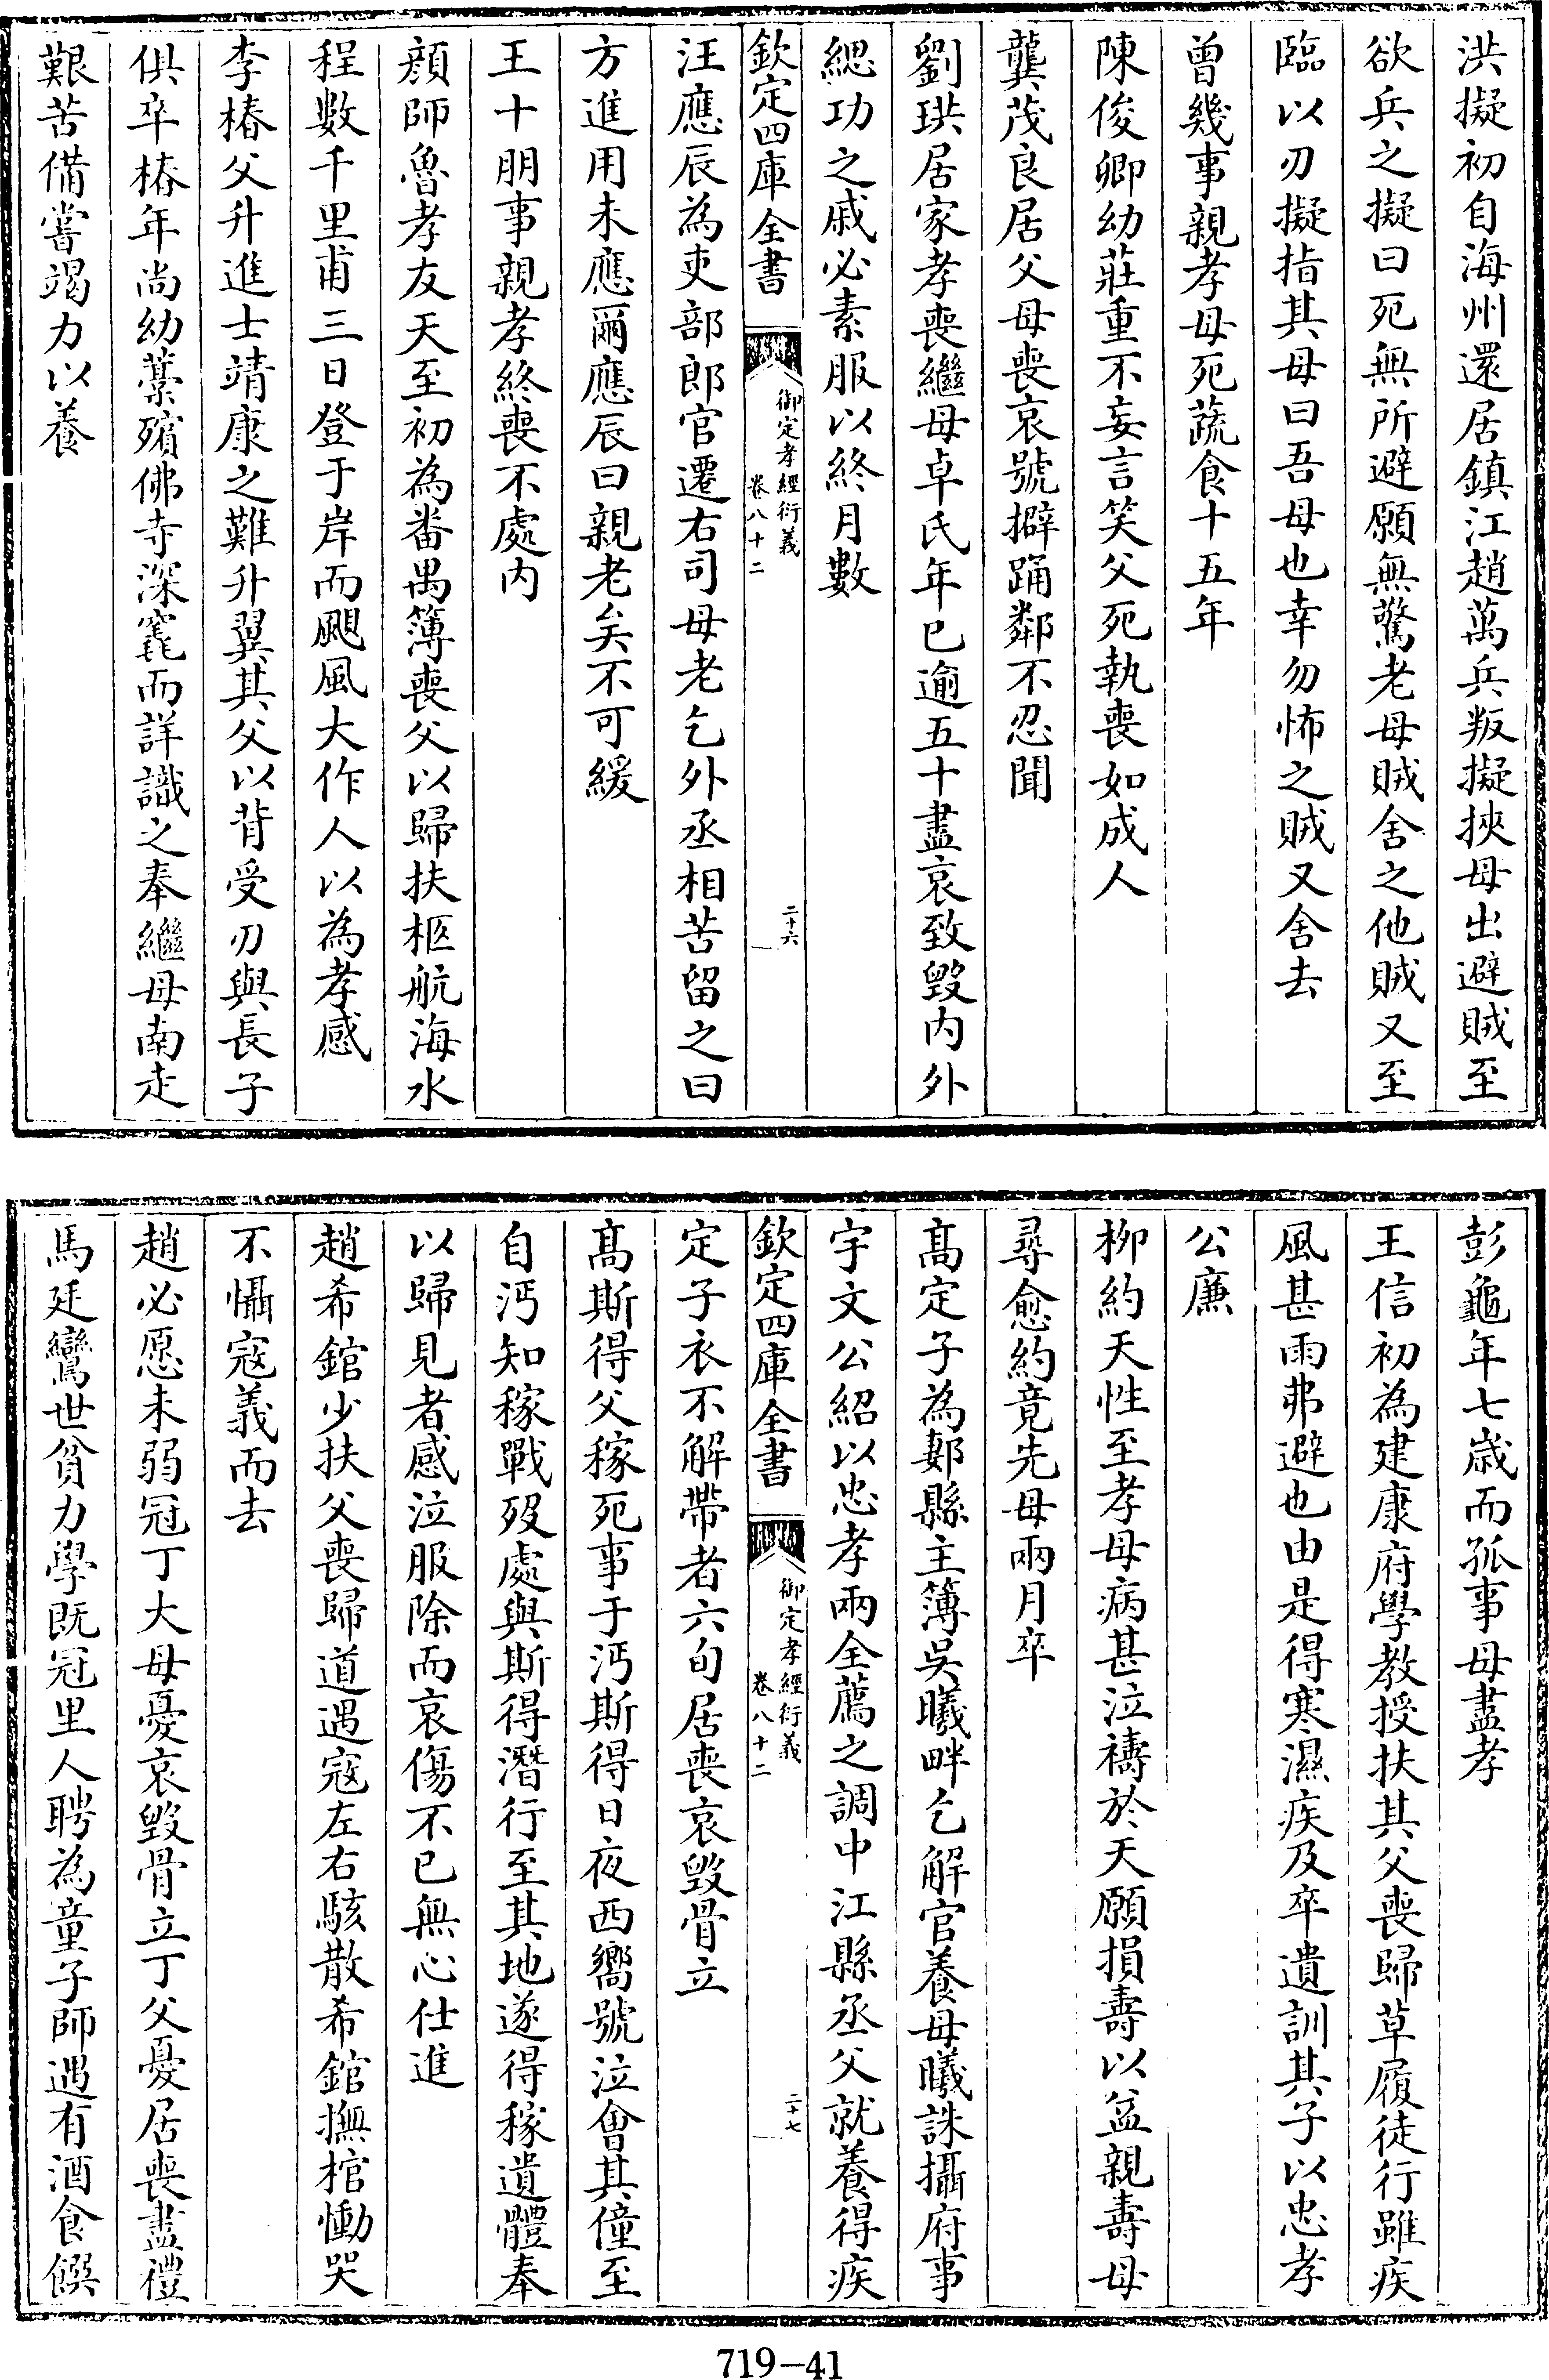 洪擬初自海州還居鎮江趙萬兵叛擬挾母出避賊至
欲兵之擬曰死無所避願無驚老母賊舍之他賊又至
臨以刃擬指其母曰吾母也幸勿怖之賊又舍去
曾幾事親孝母死蔬食十五年
陳俊卿幼莊重不妄言笑父死執喪如成人
龔茂良居父母喪哀號擗踊鄰不忍聞
劉珙居家孝喪繼母卓氏年已逾五十盡哀致毀内外
緦功之戚必素服以終月數
欽定四庫全書
御定孝經衍義
卷八十二
二十六
汪應辰為吏部郎官遷右司母老乞外丞相苦留之曰
方進用未應爾應辰曰親老矣不可緩
王十朋事親孝終喪不處内
顔師魯孝友天至初為番禺簿喪父以歸扶柩航海水
程數千里甫三日登于岸而颶風大作人以為孝感
李椿父升進士靖康之難升翼其父以背受刃與長子
俱卒椿年尚幼藁殯佛寺深窆而詳識之奉繼母南走
艱苦備嘗竭力以養
彭龜年七歳而孤事母盡孝
王信初為建康府學教授扶其父喪歸草履徒行雖疾
風甚雨弗避也由是得寒濕疾及卒遺訓其子以忠孝
公廉
柳約天性至孝母病甚泣禱於天願損壽以益親壽母
尋愈約竟先母兩月卒
髙定子為郪縣主簿吳曦畔乞解官養母曦誅攝府事
宇文公紹以忠孝兩全薦之調中江縣丞父就養得疾
欽定四庫全書
御定孝經衍義
卷八十二
二十七
定子衣不解帶者六旬居喪哀毀骨立
髙斯得父稼死事于沔斯得日夜西嚮號泣會其僮至
自沔知稼戰殁處與斯得潛行至其地遂得稼遺體奉
以歸見者感泣服除而哀傷不已無心仕進
趙希錧少扶父喪歸道遇寇左右駭散希錧撫棺慟哭
不懾寇義而去
趙必愿未弱冠丁大母憂哀毀骨立丁父憂居喪盡禮
馬廷鸞世貧力學既冠里人聘為童子師遇有酒食饌
719-41